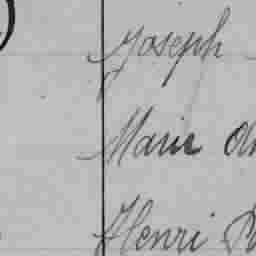 Joseph
Marie
Henri